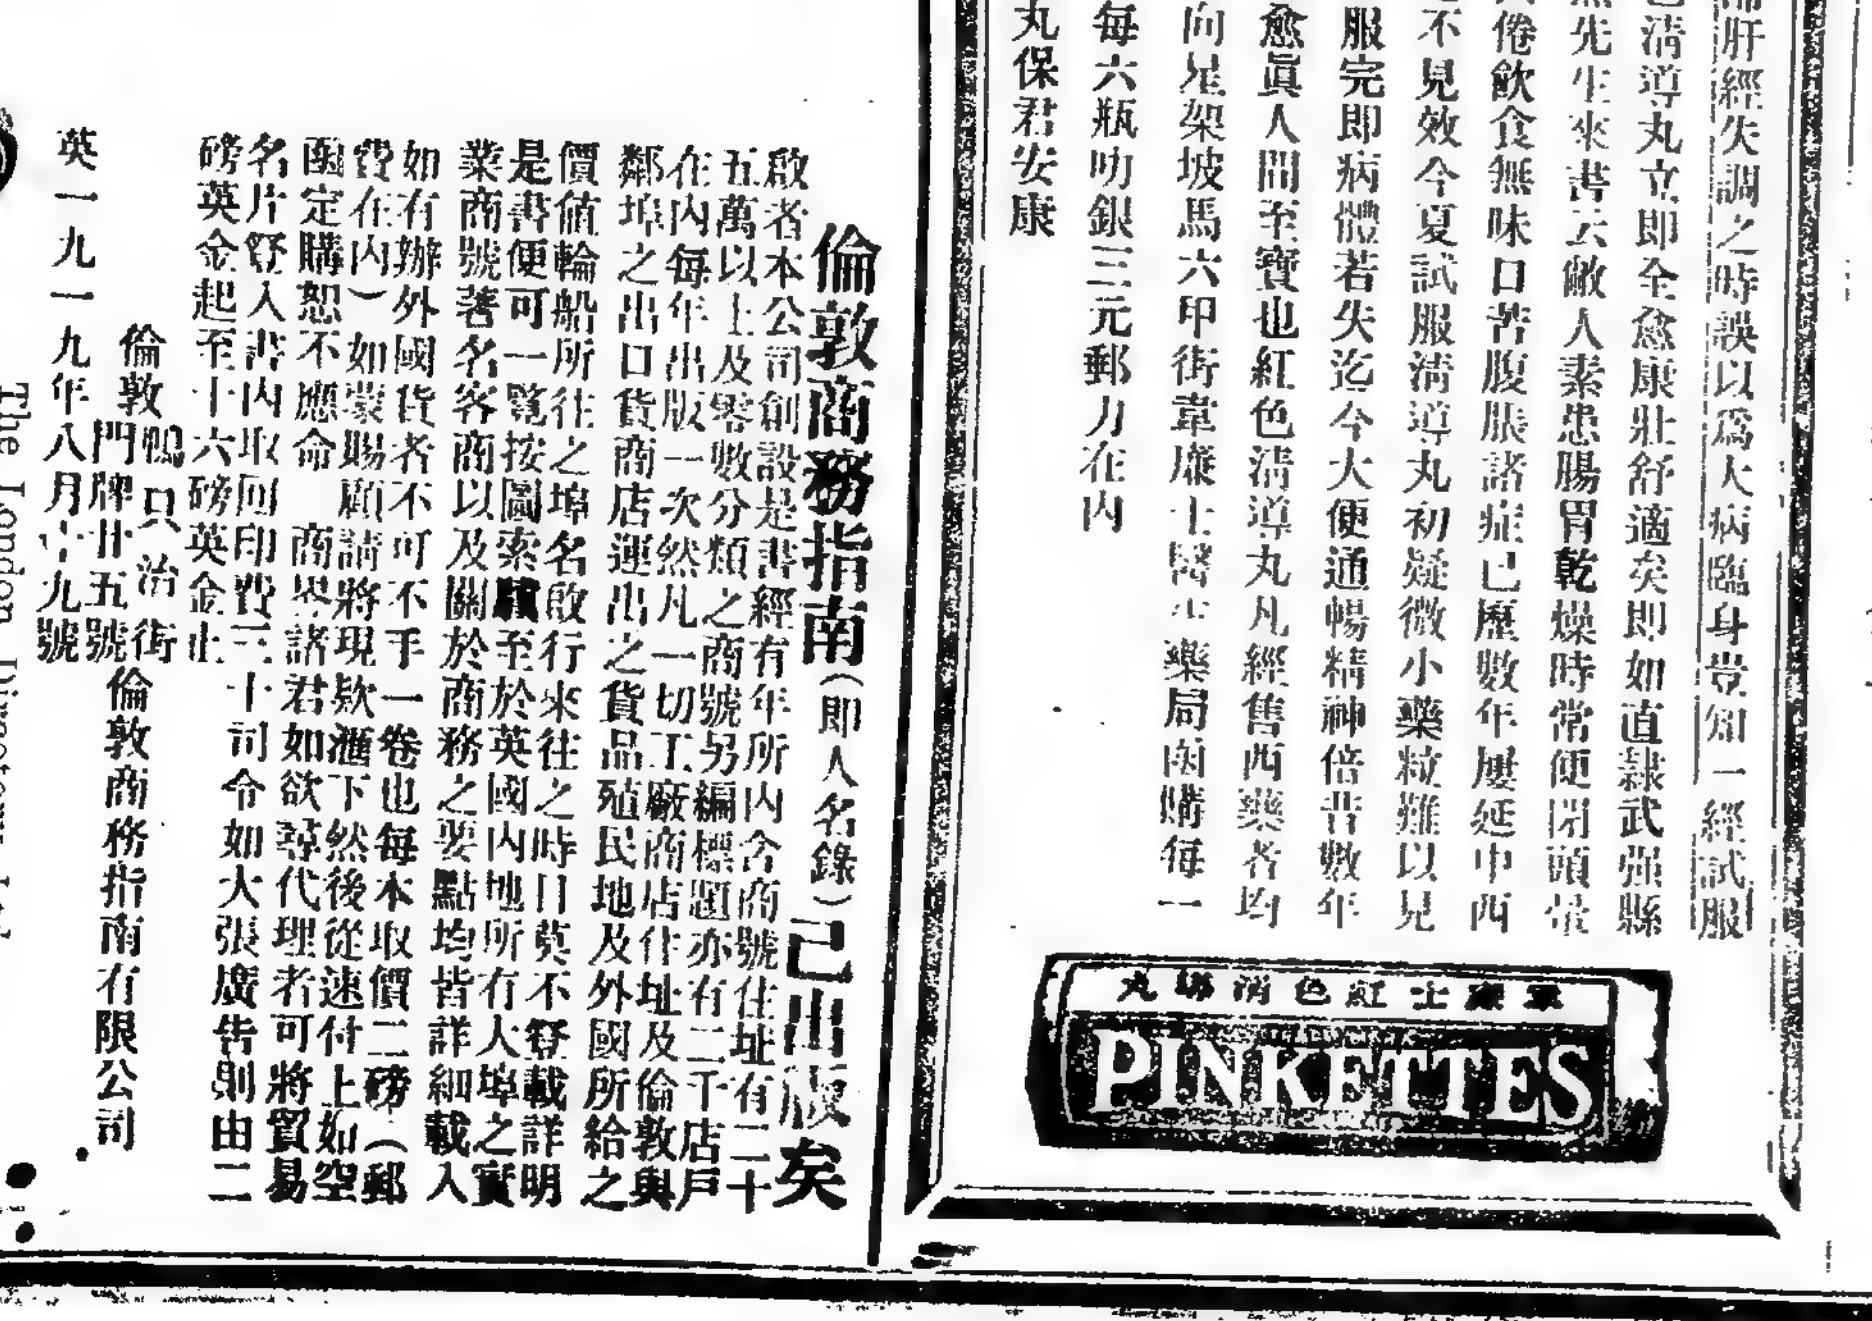 肝經失調之時誤以爲大病臨身豈知一經試服
清導丸立即全愈康壯舒適矣即如直隸武强縣
先生來書云敝人素患腸胃乾燥時常便閉頭暈
倦飲食無味口苦腹脹諸症已歷數年屢延中西
不見效今夏試服清導丸初疑微小藥粒難以見
服完即病體若失迄今大便通暢精神倍昔數年
愈眞人間至寶也紅色清導丸凡經售西藥者均
向星架坡馬六甲街韋廉士醫生藥局函購每一
每六瓶叻銀三元郵力在內
丸保君安康
韋廉士紅色清導丸
PINKETTES
倫敦商務指南（即人名錄）已出版矣
啟者本公司創設是書經有年所內含商號住址有二十
五萬以上及零數分類之商號另編標題亦有二千店戶
在內每年出版一次然凡一切工廠商店住址及倫敦與
鄰埠之出口貨商店運出之貨品殖民地及外國所給之
價值輪船所往之埠名啟行來往之時日莫不登載詳明
是書便可一覽按圖索驥至於英國內地所有大埠之實
業商號著名客商以及關於商務之要點均皆詳細載入
如有辦外國貨者不可不手一卷也每本取價二磅（郵
費在內）如蒙賜顧請將現欵滙下然後從速付上如空
函定購恕不應命 商界諸君如欲尋代理者可將貿易
名片登入書內取回印費三十司令如大張廣告則由二
磅英金起至十六磅英金止
倫敦鴨只治街
門牌廿五號
倫敦商務指南有限公司
英一九一九年八月十九號
The London Directory